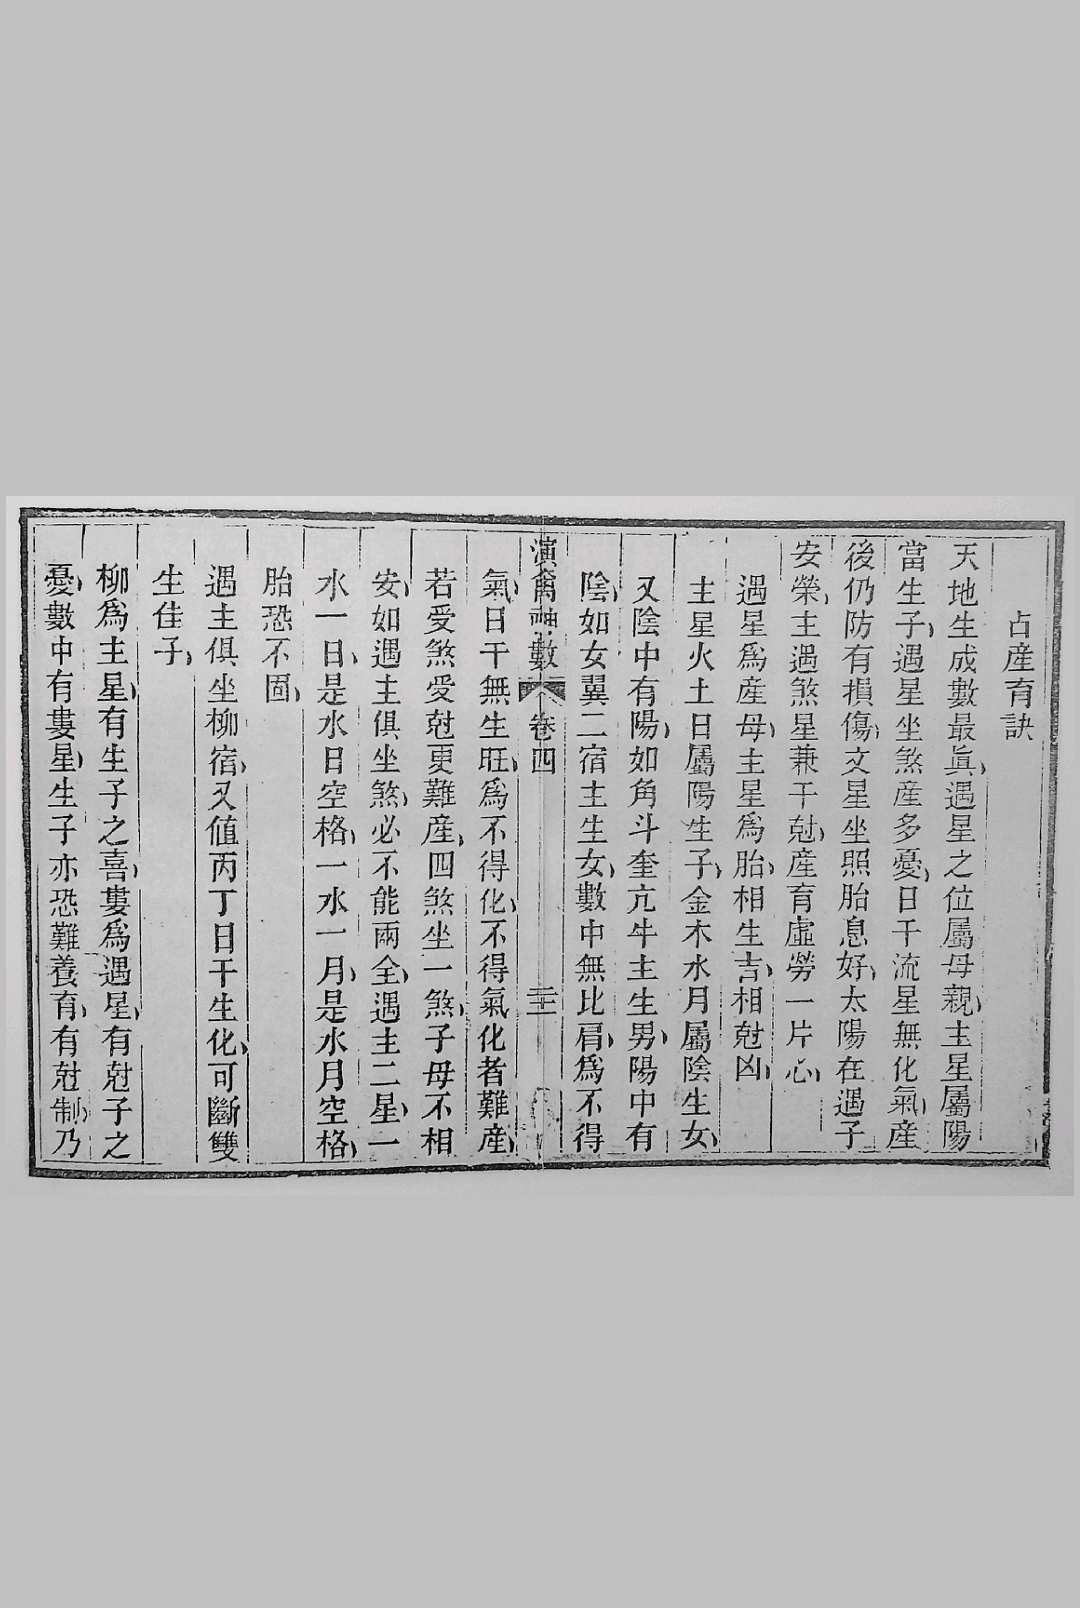 占産育訣
天地生成數最眞遇星之位屬母親主星屬陽
當生子遇星坐煞産多憂日干流星無化氣産
後仍防有損傷文星坐照胎息好太陽在遇子
安榮主遇煞星兼干尅産育虛勞一片心
遇星爲産母主星爲胎相生吉相尅凶
主星火土日屬陽生子金木水月屬陰生女
又陰中有陽如角斗奎亢牛主生男陽中有
陰如女翼二宿主生女數中無比肩爲不得
演禽神數 卷四 三十一
氣日干無生旺爲不得化不得氣化者難産
若受煞受尅更難産四煞坐一煞子母不相
安如遇主俱坐煞必不能兩全遇主二星一
水一日是水日空格一水一月是水月空格
胎恐不固
遇主俱坐柳宿又值丙丁日干生化可斷雙
生佳子
柳爲主星有生子之喜婁爲遇星有尅子之
憂數中有婁星生子亦恐難養育有尅制乃